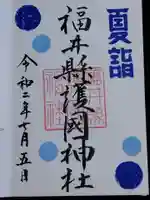 夏詣
福井縣護國神社
令和二年七月五日